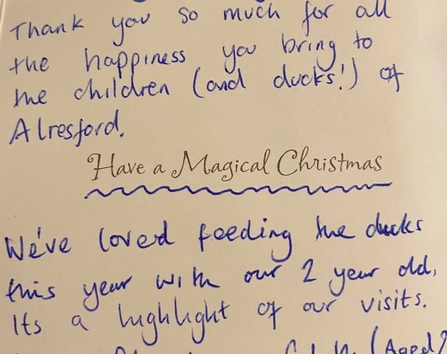 Thank you so much for all
the happiness you bring to
the children (and ducks!) of
Alresford.
Have a Magical Christmas
We've loved feeding the ducks
this year with our 2 year old,
Its a highlight of our visits.
(Aged 2